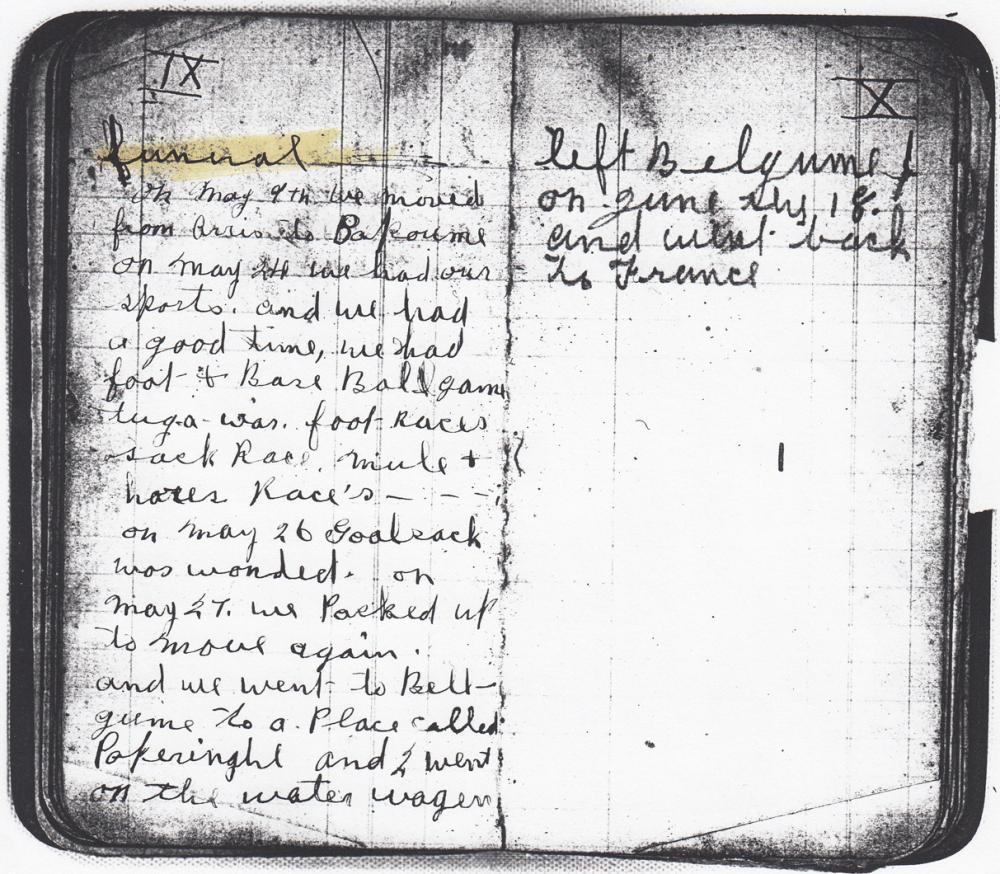 IX
funural
on May 9th we moved
from Arris to Bapoume
on May 24 we had our
sports. and we had
a good time, we had
foot & Base Ball game
tug-a-war. foot Races
sack Race. mule +
hores Race's - - -
on May 26 Goalsack
was wonded. on
May 27. we Packed up
to move again.
and we went to Belt-
gume to a Place called
Pokeringhe and I went
on the water wagen
X
left Belgume
on June 18.
and went back
to France